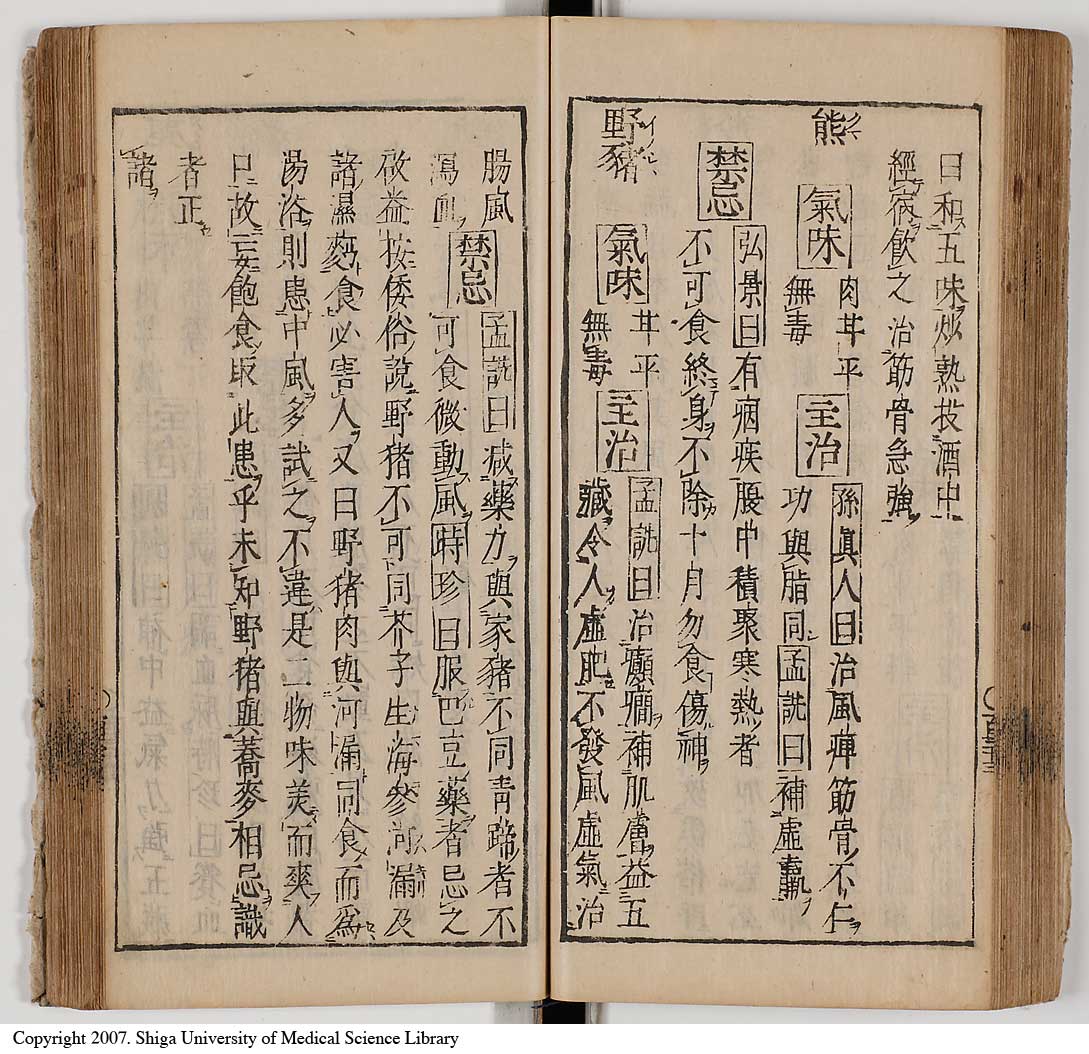 日和五味炒熟投酒中
經宿飲之治筋骨急強
熊 氣味 肉甘平
無毒 主治 孫眞人曰治風痺筋骨不仁
功與脂同孟詵曰補虛羸
禁忌 弘景曰有痼疾腹中積聚寒熱者
不可食終身不除十月勿食傷神
野豬 氣味 甘平
無毒 主治 孟詵曰治癲癇補肌膚益五
臟令人虛肥不發風虛氣治
腸風
瀉血 禁忌 孟詵曰减藥力與家豬不同青蹄者不
可食微動風時珍曰服巴豆藥者忌之
啟益按倭俗說野猪不可同芥子生海參河漏及
諸濕麪食必害人又曰野猪肉與河漏同食而爲
湯浴則患中風多試之不違是二物味美而爽人
口故妄飽食取此患乎未知野猪與蕎麥相忌識
者正
諸
Copyright 2007. Shiga University of Medical Science Library